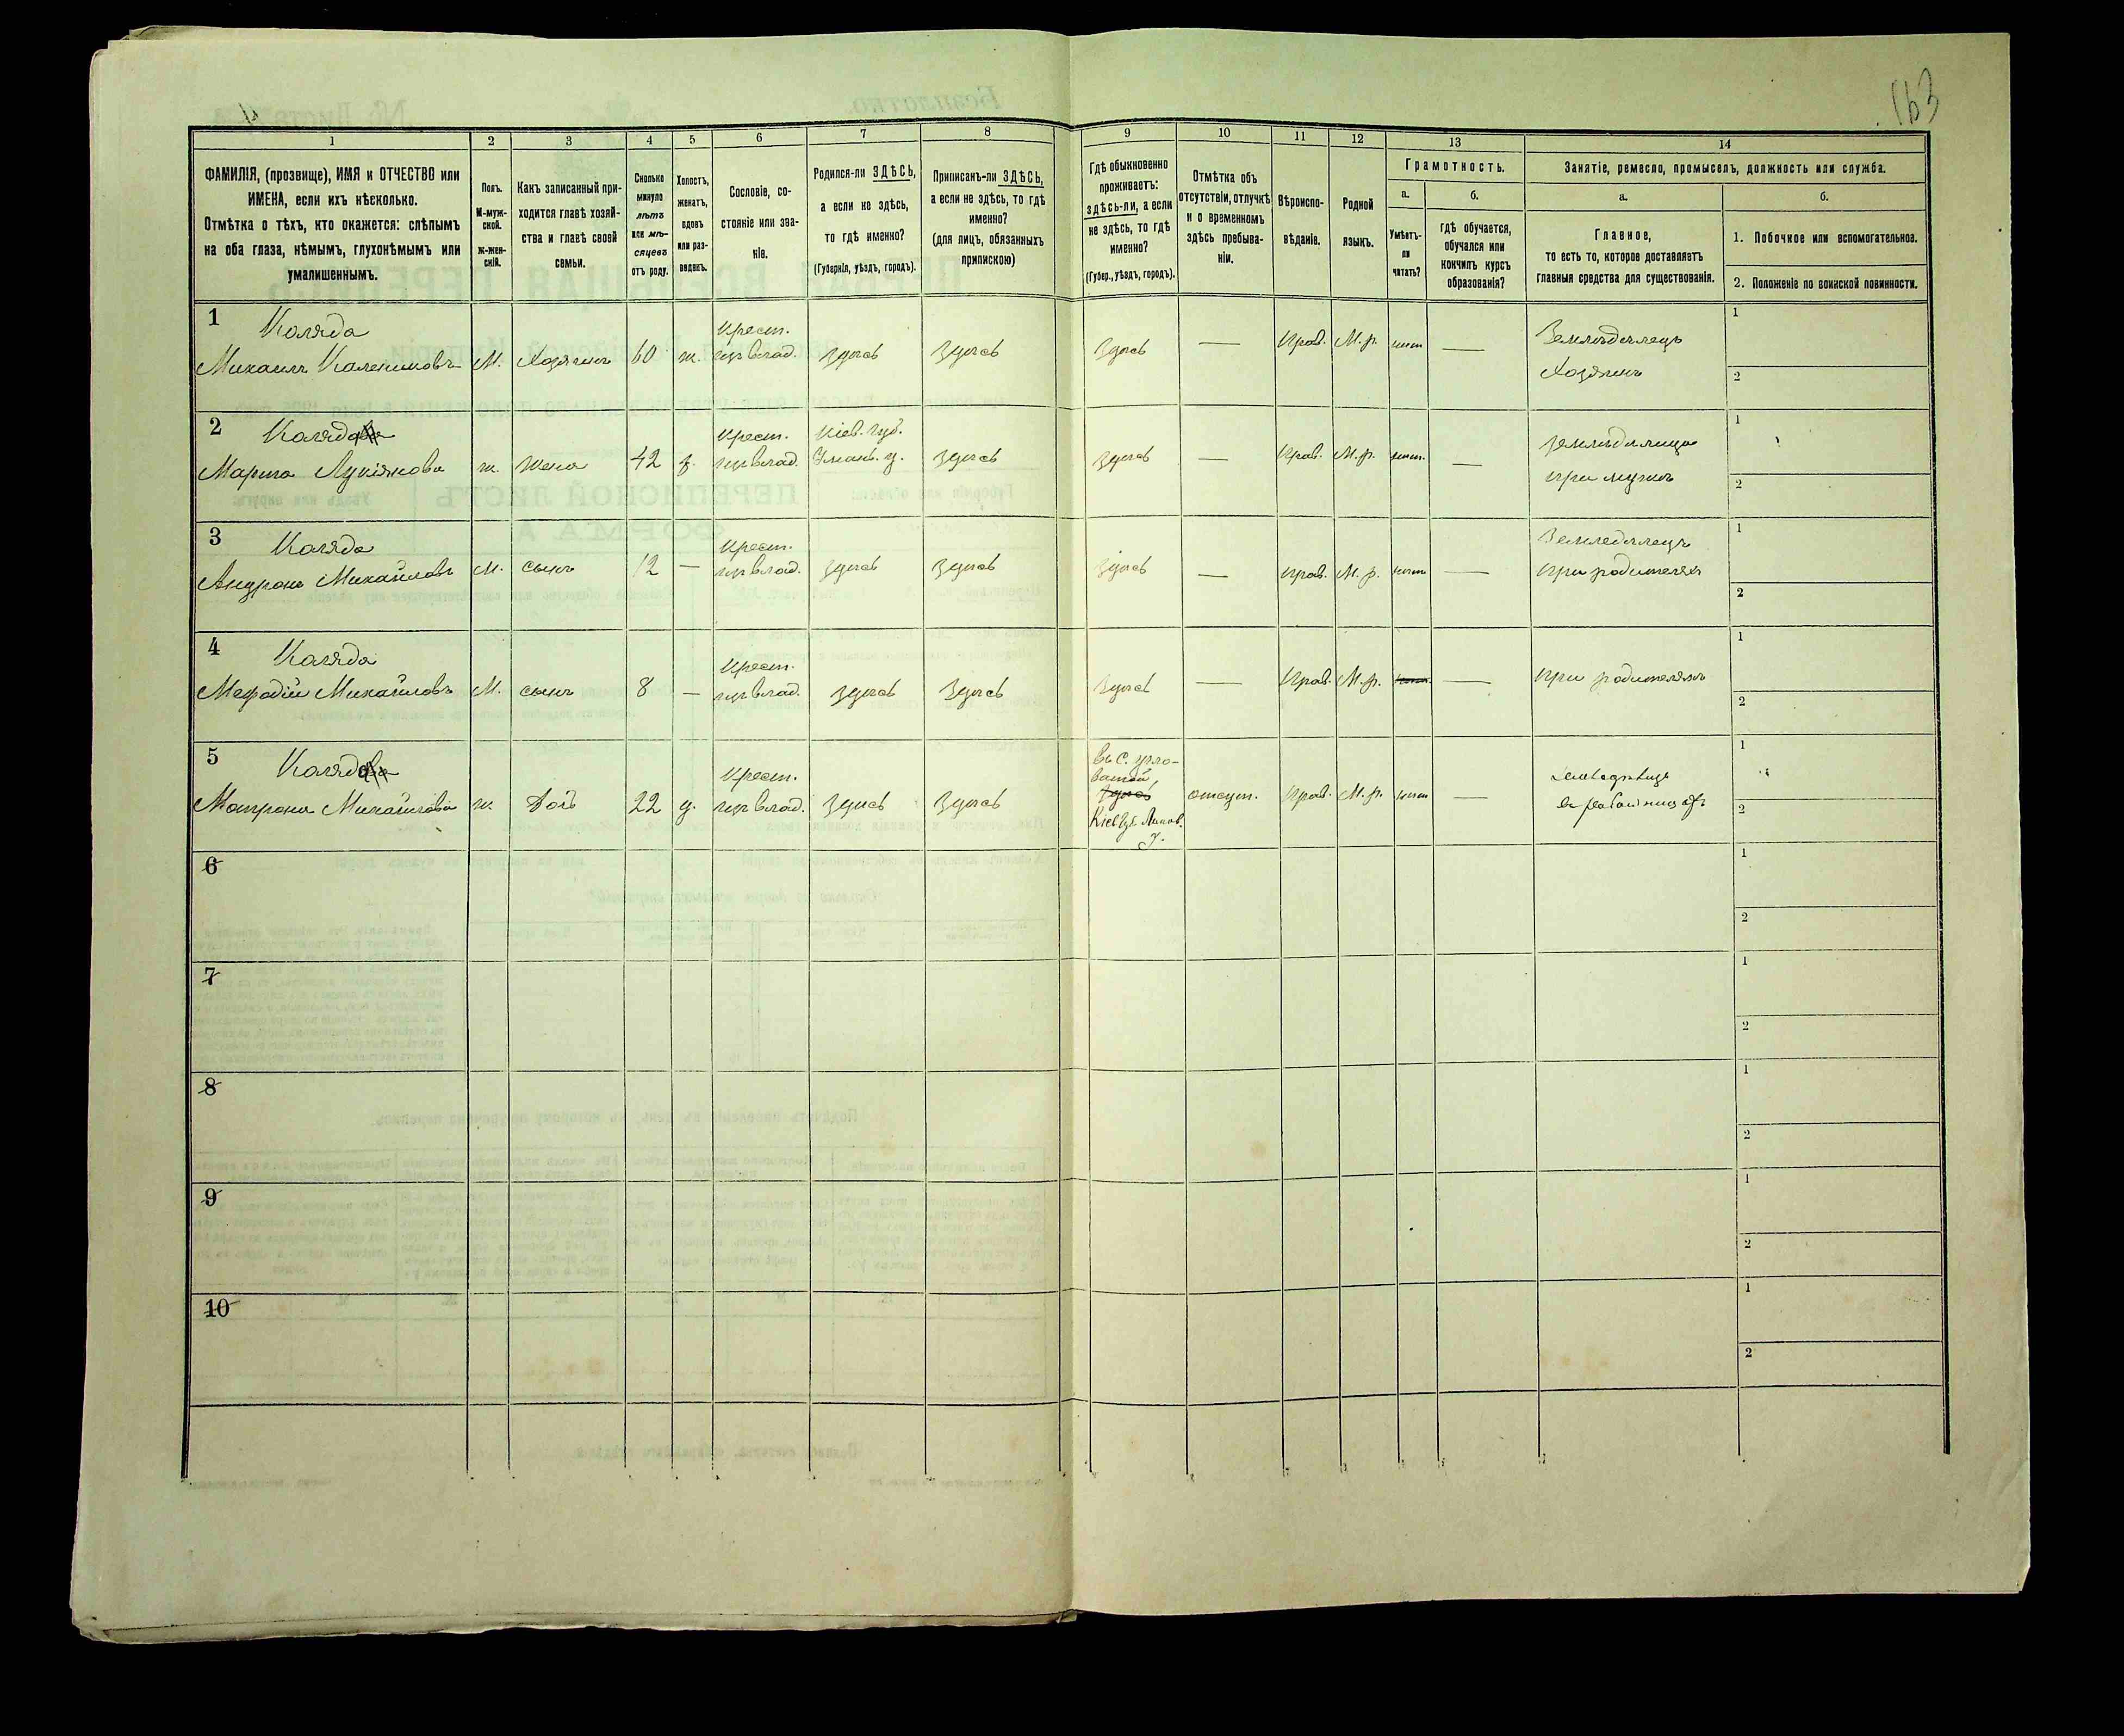 163
1
2
3
4
5
6
7
8
9
10
11
12
13
14
ФАМИЛІЯ, (прозвище), ИМЯ и ОТЧЕСТВО или
ИМЕНА, если ихъ нѣсколько.
Отмѣтка о тѣхъ, кто окажется: слѣпымъ
на оба глаза, нѣмымъ, глухонѣмымъ или
умалишеннымъ.
Полъ.
М-муж-
ской.
Ж-жен-
скій.
Какъ записанный при-
ходится главѣ хозяй-
ства и главѣ своей
семьи.
Сколько
минуло
лѣтъ
или мѣ-
сяцевъ
отъ роду.
Холостъ,
женатъ,
вдовъ
или раз-
веденъ.
Сословіе, со-
стояніе или зва-
ніе.
Родился-ли ЗДѢСЬ,
а если не здѣсь,
то гдѣ именно?
(Губернія, уѣздъ, городъ).
Приписанъ-ли ЗДѢСЬ,
а если не здѣсь, то гдѣ
именно?
(для лицъ, обязанныхъ
припискою)
Гдѣ обыкновенно
проживаетъ:
здѣсь-ли, а если
не здѣсь, то гдѣ
именно?
(Губер., уѣздъ, городъ).
Отмѣтка объ
отсутствіи, отлучкѣ
и о временномъ
здѣсь пребыва-
ніи.
Вѣроиспо-
вѣданіе.
Родной
языкъ.
Грамотность.
а.
Умѣетъ-
ли
читать?
б.
гдѣ обучается,
обучался или
кончилъ курсъ
образованія?
Занятіе, ремесло, промыселъ, должность или служба.
а.
Главное,
то есть то, которое доставляетъ
главныя средства для существованія.
б.
1. Побочное или вспомогательное.
2. Положеніе по воинской повинности.
1
Коляда
Михаилъ Калениковъ
М.
Хозяинъ
60
ж.
Крест.
здѣсь
здѣсь
здѣсь
—
Прав.
М.р.
нѣт
—
Земледѣлецъ
Хозяинъ
1
2
2
Коляда
Марина Лукіянова
ж.
жена
42
з.
Крест.
Кіев. губ.
Уман. у.
здѣсь
здѣсь
—
Прав.
М.р.
нѣт.
—
земледѣлица
при мужѣ
1
2
3
Коляда
Андронъ Михайловъ
М.
сынъ
12
—
Крест.
здѣсь
здѣсь
здѣсь
—
Прав.
М.р.
нѣт
—
Земледѣлецъ
при родителяхъ
1
2
4
Коляда
Мефодій Михайловъ
М.
сынъ
8
—
Крест.
здѣсь
здѣсь
здѣсь
—
Прав.
М.р.
—
при родителяхъ
1
2
5
Коляда
Матрона Михайлова
ж.
дочь
22
д.
Крест.
здѣсь
здѣсь
въ с.
здѣсь
Кіев. губ. Липов.
у.
отсут.
Прав.
М.р.
нѣт
—
1
2
6
1
2
7
1
2
8
1
2
9
1
2
10
1
2